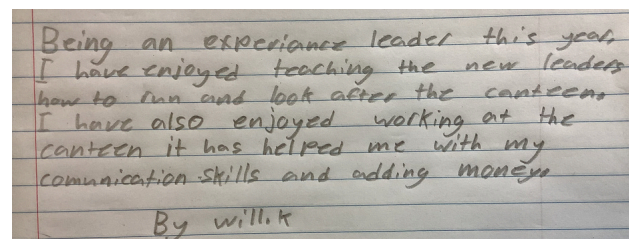 Being an experiance leader this year,
I have enjoyed teaching the new leaders
how to run and look after the canteen.
I have also enjoyed working at the
canteen it has helped me with my
comunication skills and adding money.
By will.k